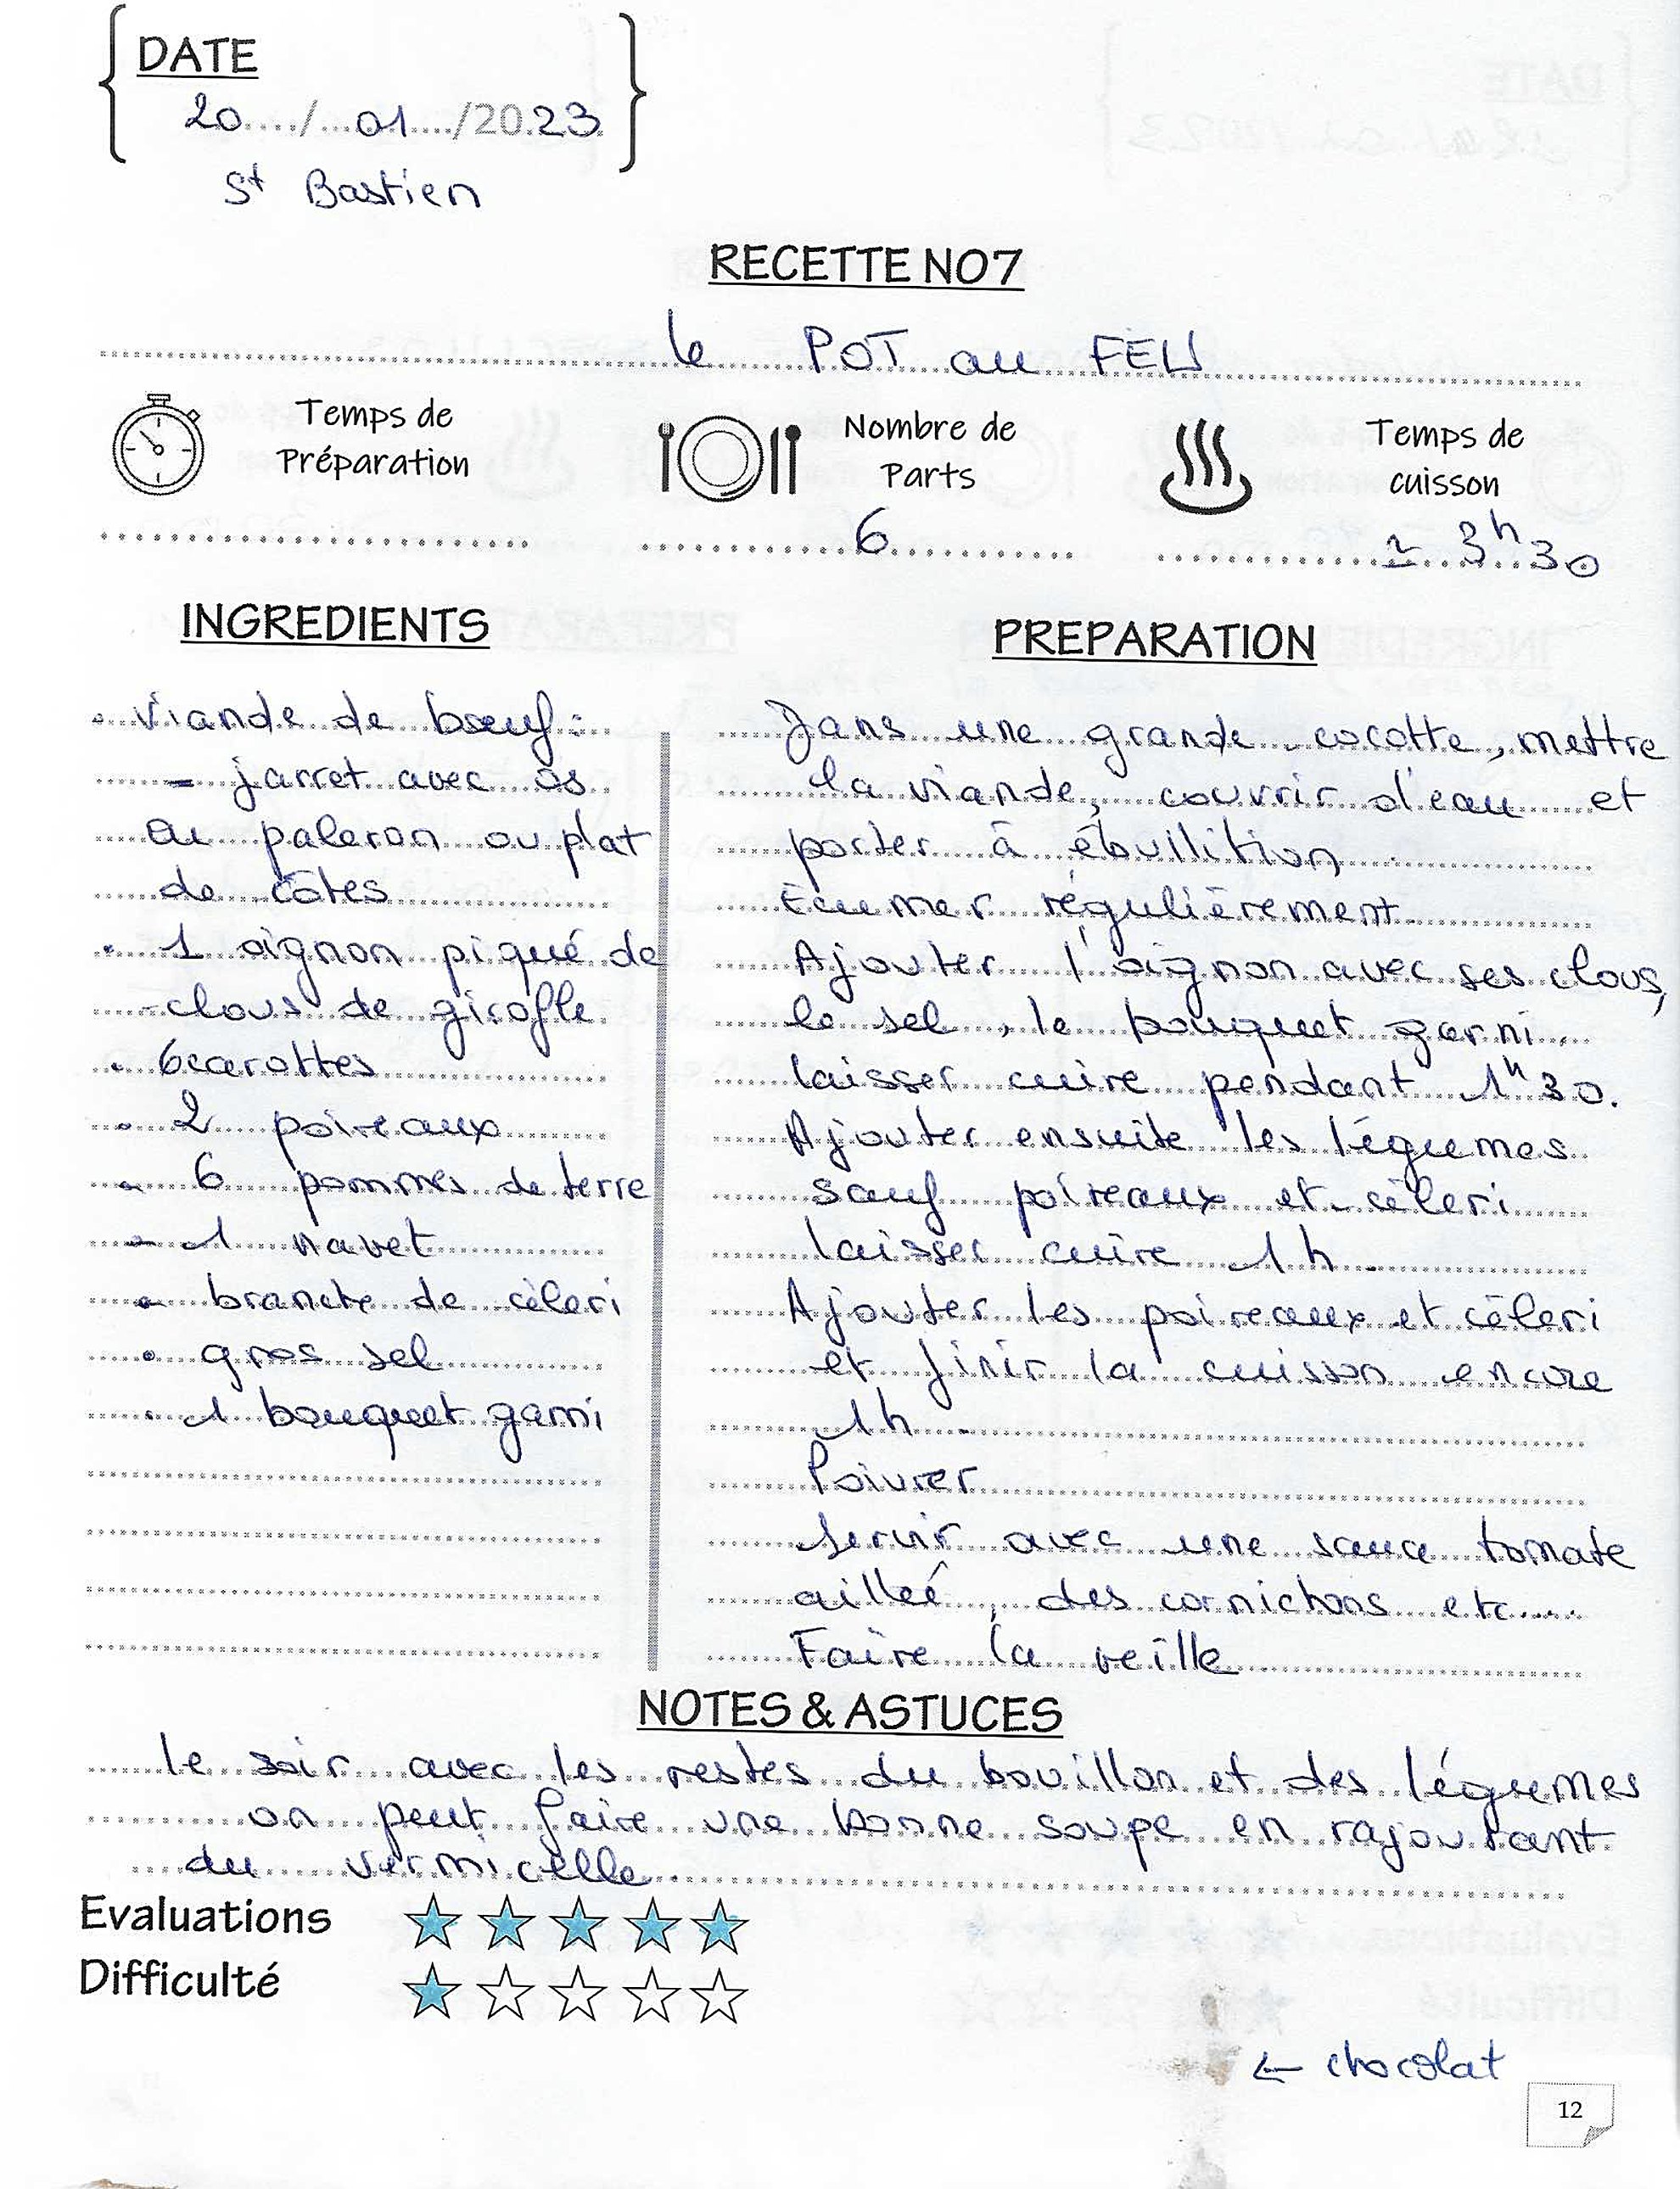 DATE
20..../...01..../20.23
St Bastien
RECETTE NO7
le POT au FEU
Temps de
Préparation
Nombre de
Parts
Temps de
cuisson
6
≃ 3h30
INGREDIENTS
• Viande de bœuf :
- jarret avec os
ou paleron ou plat
de côtes
• 1 oignon piqué de
clous de girofle
• 6 carottes
• 2 poireaux
• 6 pommes de terre
• 1 navet
• branche de cèleri
• gros sel
• 1 bouquet garni
PREPARATION
Dans une grande cocotte, mettre
la viande, couvrir d'eau et
porter à ébuilition
Ecumer régulièrement.
Ajouter l'oignon avec ses clous,
le sel, le bouquet garni.
laisser cuire pendant 1h30.
Ajouter ensuite les légumes
sauf poireaux et cèleri
laisser cuire 1h.
Ajouter les poireaux et cèleri
et finir la cuisson encore
1h.
Poivrer
Servir avec une sauce tomate
ailleé, des cornichons etc....
Faire la veille
NOTES & ASTUCES
le soir avec les restes du bouillon et des légumes
on peut faire une bonne soupe en rajoutant
du vermicelle.
Evaluations
Difficulté
← chocolat
12